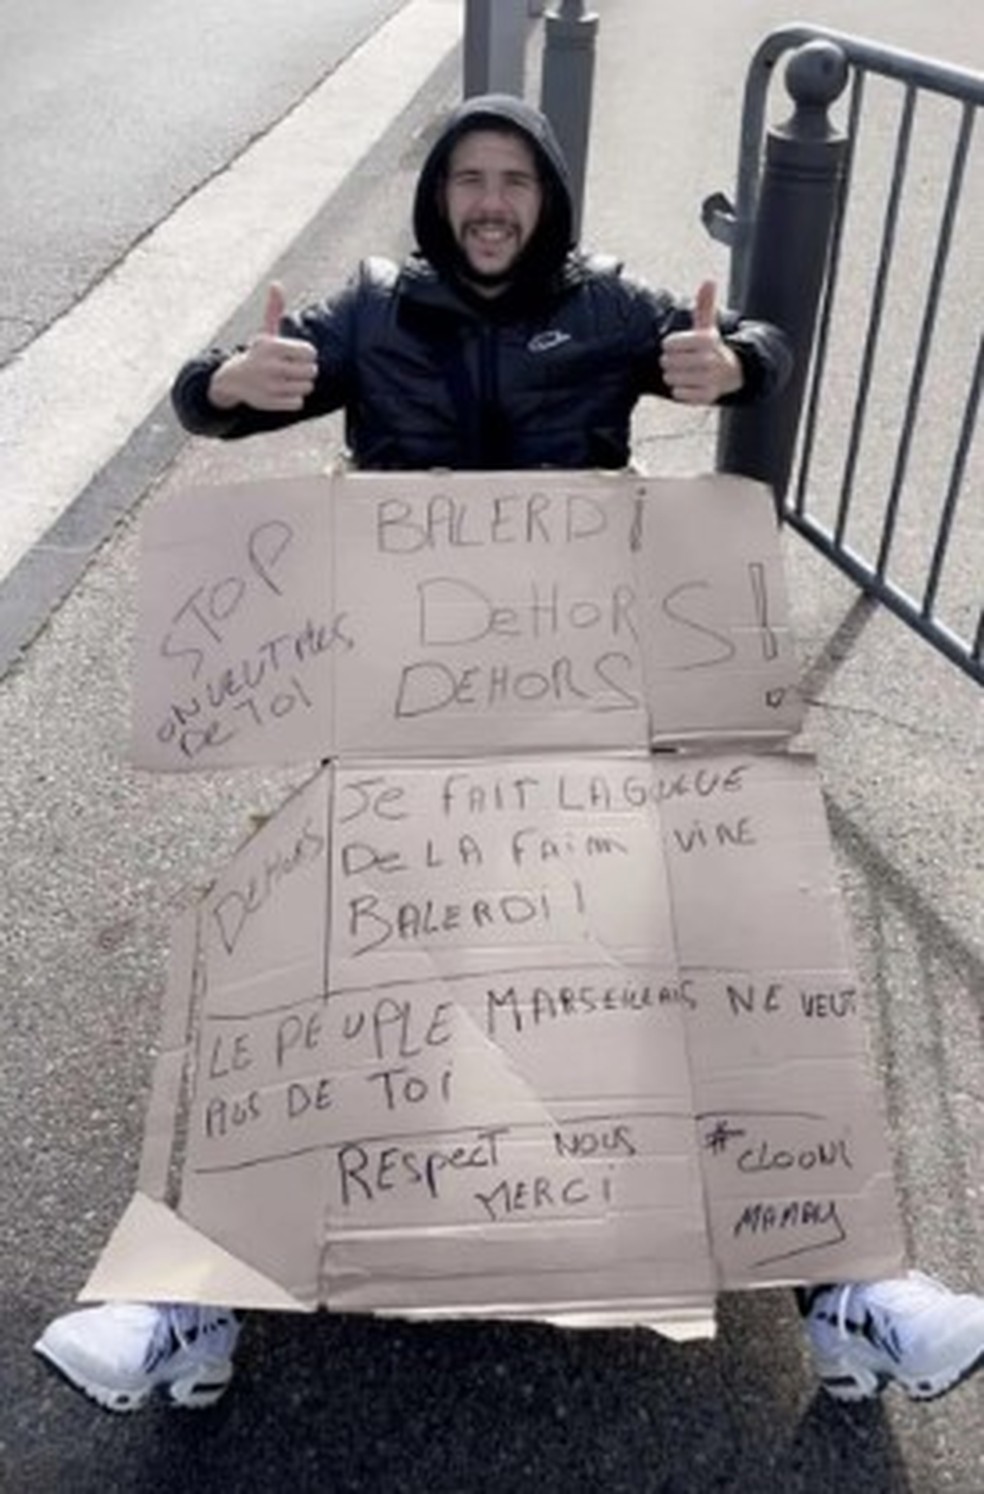 STOP
ON VEUT PLUS
DE TOI
BALERDi
DeHORS!
DEHORS
DEHORS
Je FAIT LA GUEUE
De LA FAIM ViRE
BALERDI!
LE PEUPLE MARSEILLAIS NE VEUT
PLUS DE TOi
RESpecT NOUS
MERCi
#CLOONi
MAMADY